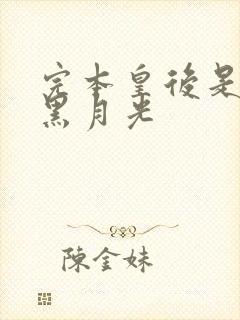 完本皇後是
黑月光
陳金妹